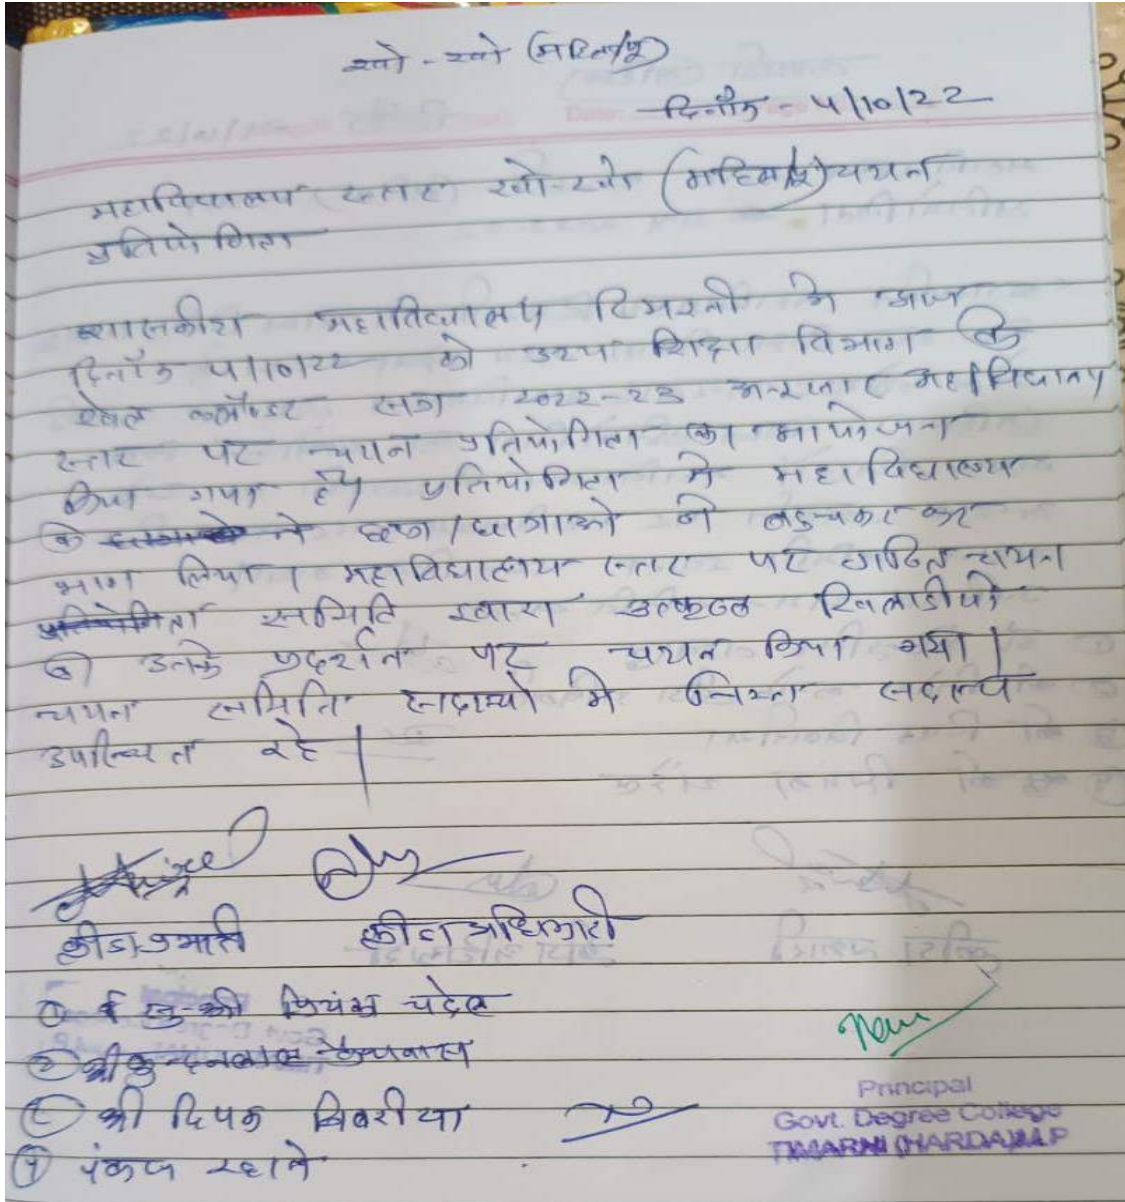 खो-खो (महिला/पु)
दिनाँक - 4/10/22
महाविद्यालय स्तर खो-खो (महिला/पु) चयन
प्रतियोगिता
शासकीय महाविद्यालय टिमरनी मे आज
दिनाँक 4/10/22 को उच्च शिक्षा विभाग के
खेल कलैण्डर सत्र 2022-23 अनुसार महाविद्यालय
स्तर पर चयन प्रतियोगिता का आयोजन
किया गया है। प्रतियोगिता मे महाविद्यालय
के ने छात्र/छात्राओ ने बढ़चढ़कर कर
भाग लिया। महाविद्यालय स्तर पर गठित चयन
प्रतियोगिता समिति द्वारा उत्कृष्ठ खिलाडीयो
का उनके प्रदर्शन पर चयन किया गया।
चयन समिति सदस्यो मे निम्न सदस्य
उपस्थित रहे।
क्रीडा प्रभारी क्रीडा अधिकारी
① सु-श्री प्रियंका चदेल
② श्री कुन्दनलाल
③ श्री दिपक
④ पंकज
Principal
Govt. Degree College
TIMARNI (HARDA) M.P